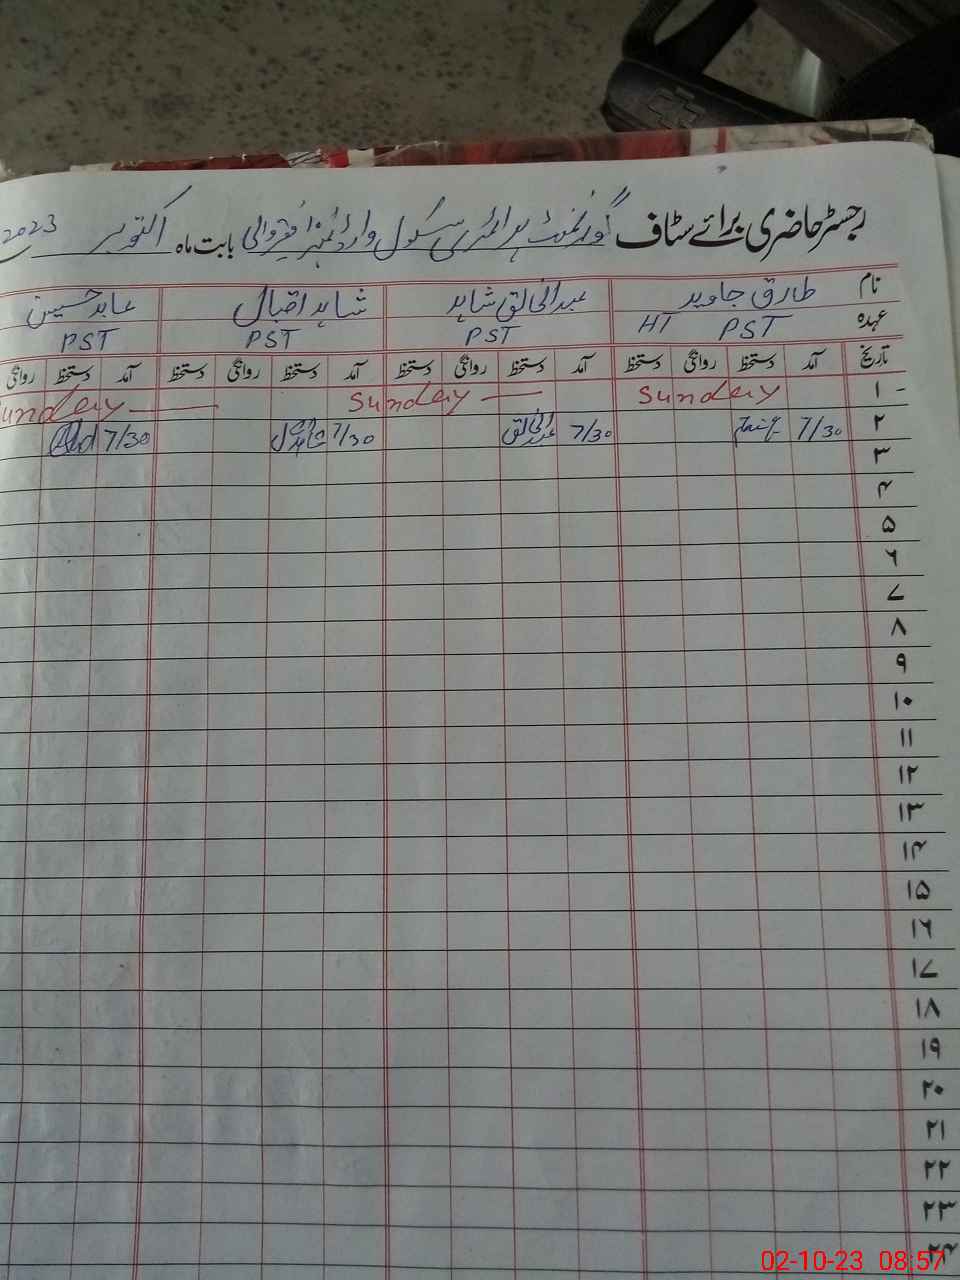 رجسٹر حاضری برائے سٹاف گورنمنٹ پرائمری سکول وارڈ نمبر ا بابت ماہ اکتوبر 2023
نام طارق جاوید عبدالخالق شاہد شاہد اقبال عابد حسین
عہدہ PST HT PST PST PST
تاریخ آمد دستخط روانگی دستخط آمد دستخط روانگی دستخط آمد دستخط روانگی دستخط آمد دستخط روانگی
۱ - Sunday Sunday Sunday
۲ 7/30 7/30 عبدالخالق 7/30 7/30
۳
۴
۵
۶
۷
۸
۹
۱۰
۱۱
۱۲
۱۳
۱۴
۱۵
۱۶
۱۷
۱۸
۱۹
۲۰
۲۱
۲۲
۲۳
۲۴
02-10-23 08:57